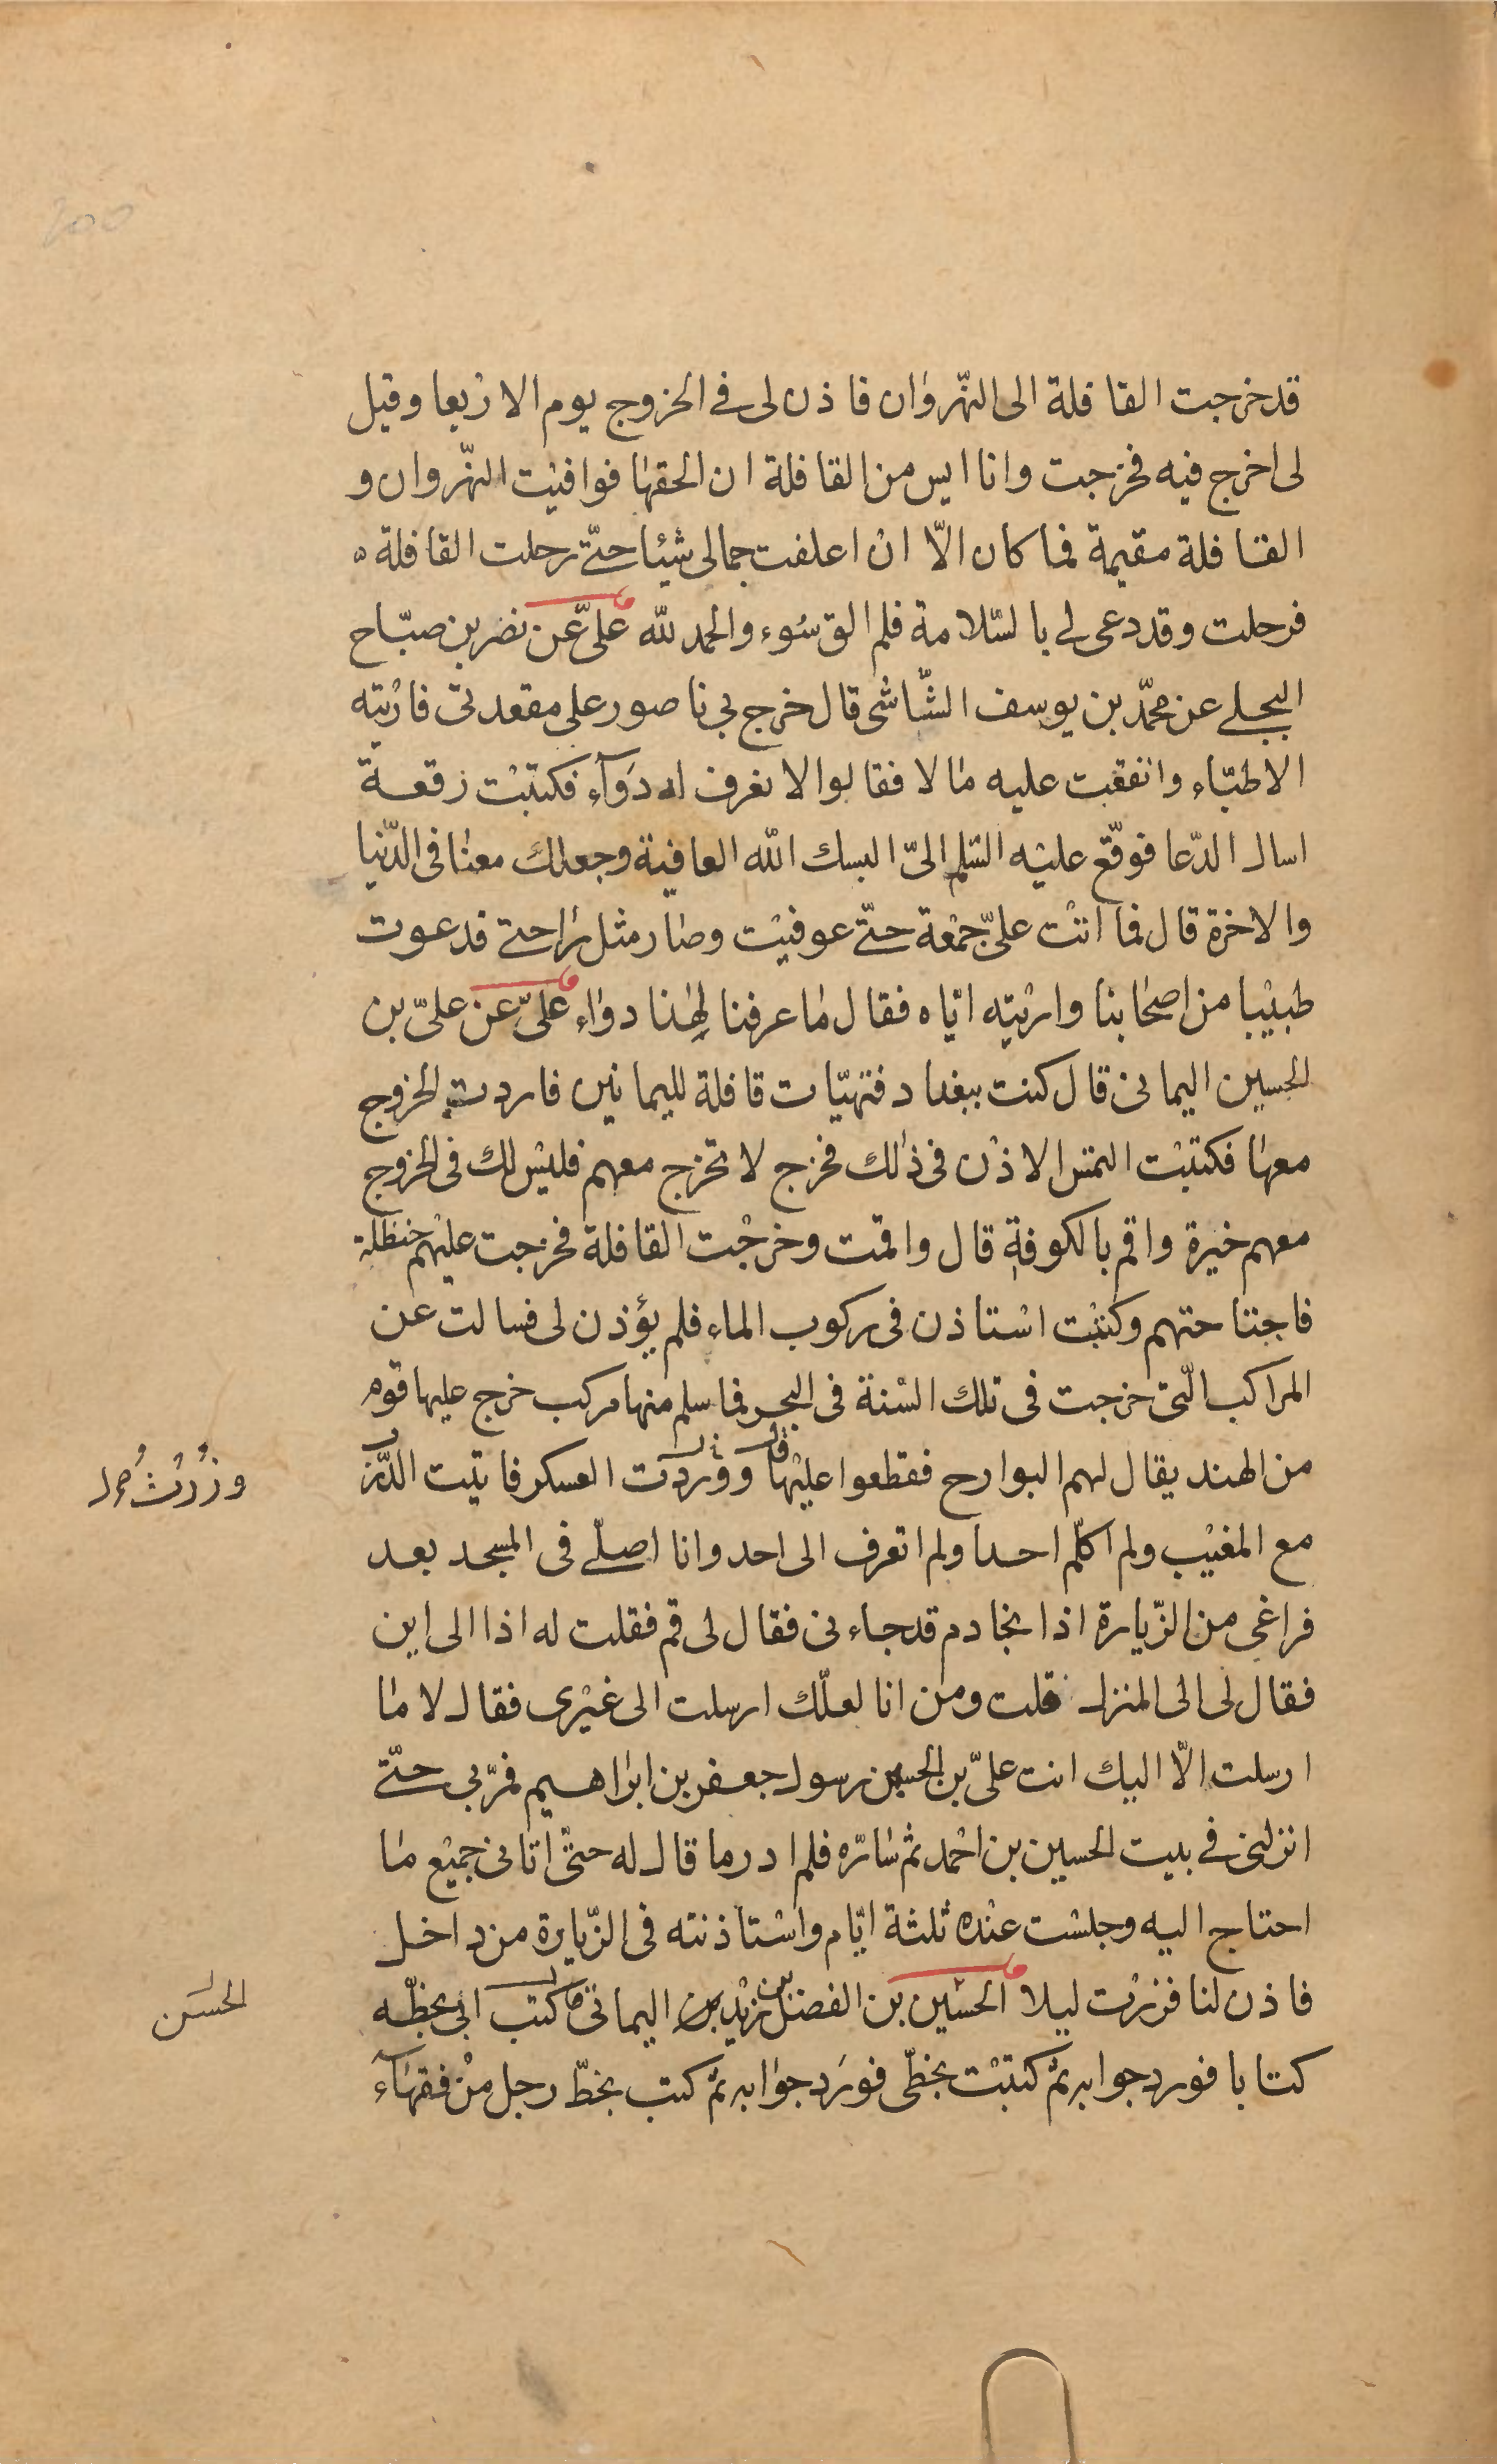 قد خرجت القافلة الى النّهروان فاذن لى فى الخروج يوم الاربعا وقيل
لى اخرج فيه فخرجت وانا ايس من القافلة ان الحقها فوافيت النّهروان و
القافلة مقيمة فما كان الّا ان اعلفت جمالى شيئا حتّى رحلت القافلة
فرحلت وقد دعى لى بالسّلامة فلم الق سُوء والحمد لله علىّ عن نضر بن صبّاح
البجلى عن محمّد بن يوسف الشّاشى قال خرج بى ناصور على مقعدتى فاريته
الاطبّاء وانفقت عليه مالا فقالوا لا نعرف له دوآء فكتبت رقعة
اسال الدّعا فوقّع عليه السّلم الىّ البسك الله العافية وجعلك معنا فى الدّنيا
والاخرة قال فما اتت علىّ جمعة حتّى عوفيت وصار مثل راحتى فدعوت
طبيبا من اصحابنا واريته ايّاه فقال ما عرفنا لهذا دواء علىّ عن علىّ بن
الحسين اليمانى قال كنت ببغداد فتهيّات قافلة لليمانين فاردت الخروج
معها فكتبت التمس الاذن فى ذلك فخرج لا تخرج معهم فليس لك فى الخروج
معهم خيرة واقم بالكوفة قال واقمت وخرجت القافلة فخرجت عليهم حنظلة
فاجتاحتهم وكتبت استاذن فى ركوب الماء فلم يؤذن لى فسالت عن
المراكب الّتى خرجت فى تلك السّنة فى البحر فما سلم منها مركب خرج عليها قوم
من الهند يقال لهم البوارح فقطعوا عليها قال ووردت العسكر فاتيت الدّرب
مع المغيب ولم اكلّم احدا ولم اتعرف الى احد وانا اصلّى فى المسجد بعد
فراغى من الزّيارة اذا بخادم قد جاءنى فقال لى قم فقلت له اذا الى اين
فقال لى الى المنزل قلت ومن انا لعلّك ارسلت الى غيرى فقال لا ما
ارسلت الّا اليك انت علىّ بن الحسين رسول جعفر بن ابراهيم فمرّ بى حتّى
انزلنى فى بيت الحسين بن احمد ثم سارّه فلم ادر ما قال له حتّى اتانى جميع ما
احتاج اليه وجلست عنده ثلثة ايّام واستاذنته فى الزّيارة من داخل
فاذن لنا فزرت ليلا الحسين بن الفضل بن زيد اليمانى قال كتب ابى بخطّه
كتابا فورد جوابه ثمّ كتبت بخطّى فورد جوابه ثمّ كتب بخطّ رجل من فقهآء
الحسن